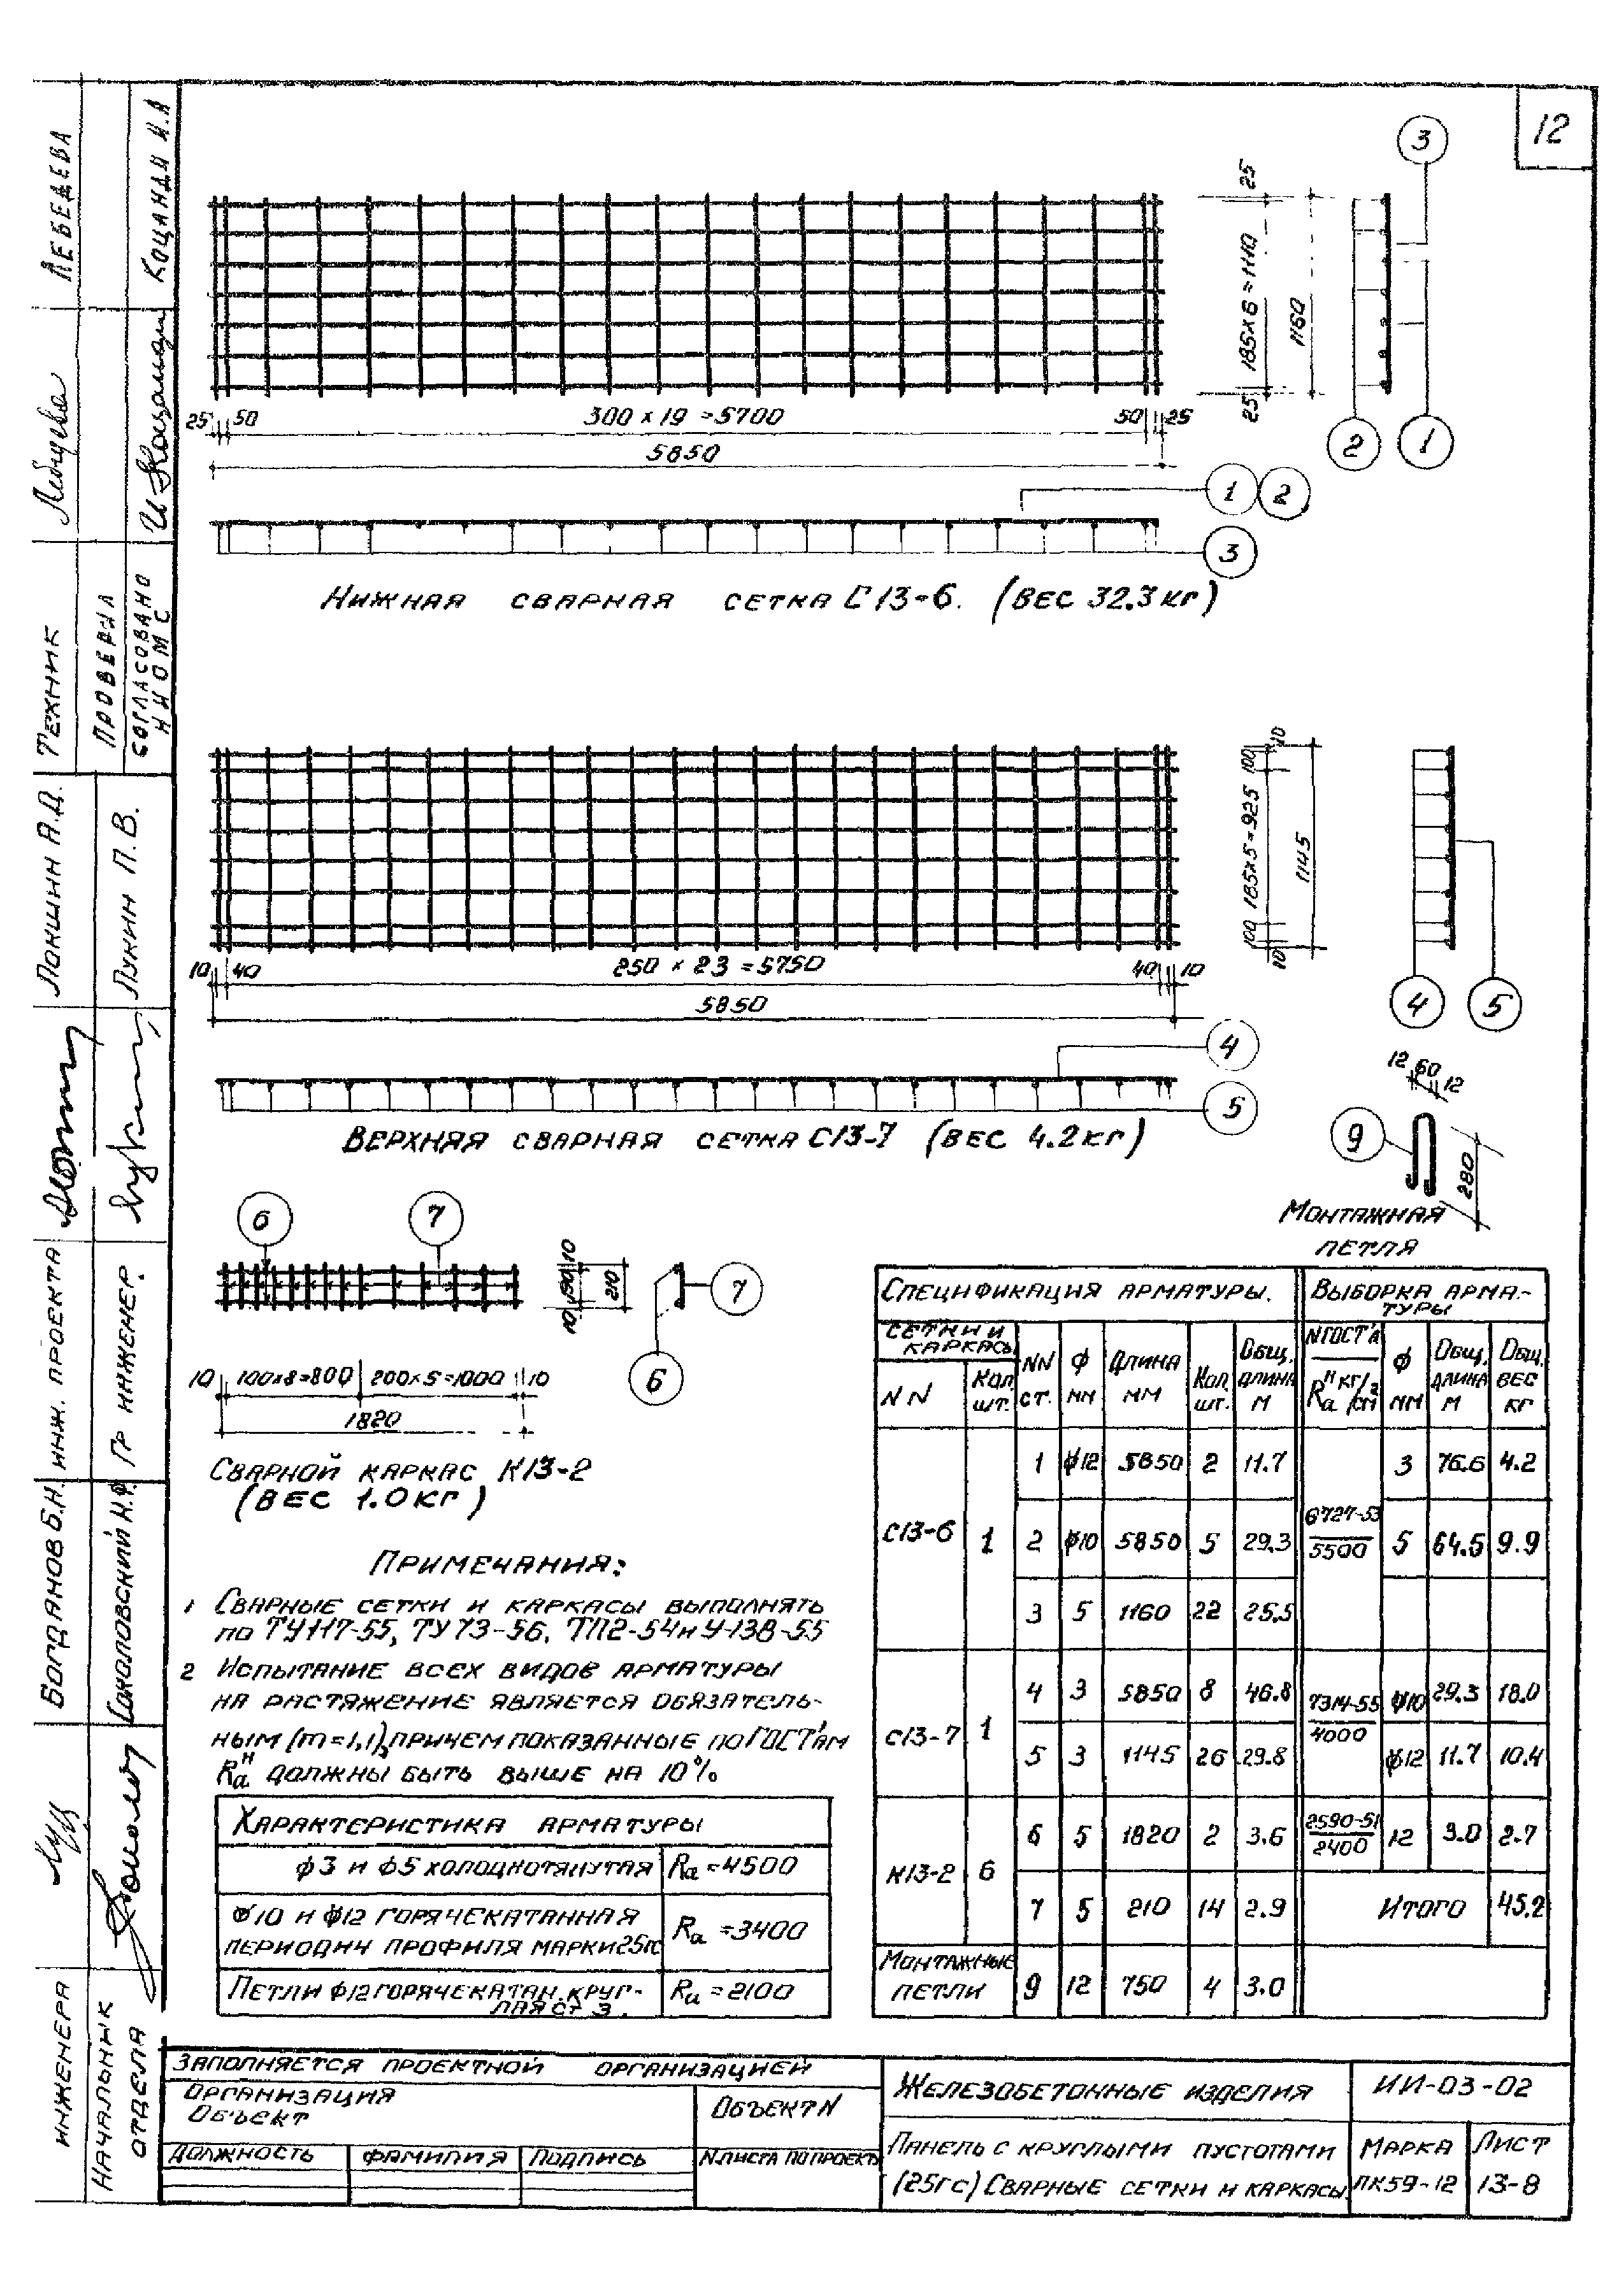 12
25
185×6=1110
1160
25
3
2
1
25
50
300 × 19 = 5700
50
25
5850
1 2
3
НИЖНЯЯ СВАРНАЯ СЕТКА С13-6. (ВЕС 32.3 КГ)
10
100
185×5=925
1145
100
10
4
5
10
40
250 × 23 = 5750
40
10
5850
4
5
ВЕРХНЯЯ СВАРНАЯ СЕТКА С13-7 (ВЕС 4.2 КГ)
12 60 12
9
280
МОНТАЖНАЯ
ПЕТЛЯ
6
7
10
190
10
210
7
6
10
100×8=800
200×5=1000
10
1820
СВАРНОЙ КАРКАС К13-2
(ВЕС 1.0 КГ)
ПРИМЕЧАНИЯ:
1 СВАРНЫЕ СЕТКИ И КАРКАСЫ ВЫПОЛНЯТЬ
ПО ТУ117-55, ТУ 73-56, ТП2-54 и У-138-55
2 ИСПЫТАНИЕ ВСЕХ ВИДОВ АРМАТУРЫ
НА РАСТЯЖЕНИЕ ЯВЛЯЕТСЯ ОБЯЗАТЕЛЬ-
НЫМ (m=1,1), ПРИЧЕМ ПОКАЗАННЫЕ ПО ГОСТ'АМ
Raн ДОЛЖНЫ БЫТЬ ВЫШЕ НА 10%
ХАРАКТЕРИСТИКА АРМАТУРЫ
ф3 И ф5 ХОЛОДНОТЯНУТАЯ Ra=4500
ф10 И ф12 ГОРЯЧЕКАТАННАЯ
ПЕРИОДИЧ ПРОФИЛЯ МАРКИ 25ГС Ra=3400
ПЕТЛИ ф12 ГОРЯЧЕКАТАН. КРУГ-
ЛАЯ СТ 3. Ra=2100
СПЕЦИФИКАЦИЯ АРМАТУРЫ.
ВЫБОРКА АРМА-
ТУРЫ
СЕТКИ И
КАРКАСЫ
NN
КОЛ. ШТ.
NN СТ.
ф ММ
ДЛИНА ММ
КОЛ. ШТ.
ОБЩ. ДЛИНА М
N ГОСТ'А
Raн КГ/СМ2
ф ММ
ОБЩ. ДЛИНА М
ОБЩ. ВЕС КГ
1 ф12 5850 2 11.7 3 76.6 4.2
С13-6 1 2 ф10 5850 5 29.3 6727-53 5500 5 64.5 9.9
3 5 1160 22 25.5
4 3 5850 8 46.8 7314-55 4000 ф10 29.3 18.0
С13-7 1
5 3 1145 26 29.8 ф12 11.7 10.4
6 5 1820 2 3.6 2590-51 2400 12 3.0 2.7
К13-2 6
7 5 210 14 2.9 ИТОГО 45.2
МОНТАЖНЫЕ
ПЕТЛИ 9 12 750 4 3.0
ЗАПОЛНЯЕТСЯ ПРОЕКТНОЙ ОРГАНИЗАЦИЕЙ
ОРГАНИЗАЦИЯ
ОБЪЕКТ
ОБЪЕКТ N
ДОЛЖНОСТЬ ФАМИЛИЯ ПОДПИСЬ N ЛИСТА ПО ПРОЕКТУ
ЖЕЛЕЗОБЕТОННЫЕ ИЗДЕЛИЯ ИИ-03-02
ПАНЕЛЬ С КРУГЛЫМИ ПУСТОТАМИ
(25ГС) СВАРНЫЕ СЕТКИ И КАРКАСЫ.
МАРКА
ПК59-12
ЛИСТ
13-8
ЛЕБЕДЕВА
КОЦАНДИ И.А
ТЕХНИК
ПРОВЕРИЛ
СОГЛАСОВАНО
НИОМС
ЛОКШИН А.Д.
ЛУКИН П.В.
ИНЖ. ПРОЕКТА
ГР ИНЖЕНЕР.
БОГДАНОВ Б.Н.
СОКОЛОВСКИЙ Н.Ф.
ИНЖЕНЕРА
НАЧАЛЬНИК
ОТДЕЛА